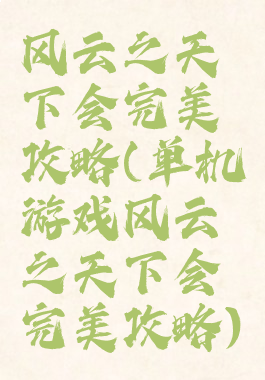 风云之天
下会完美
攻略(单机
游戏风云
之天下会
完美攻略)